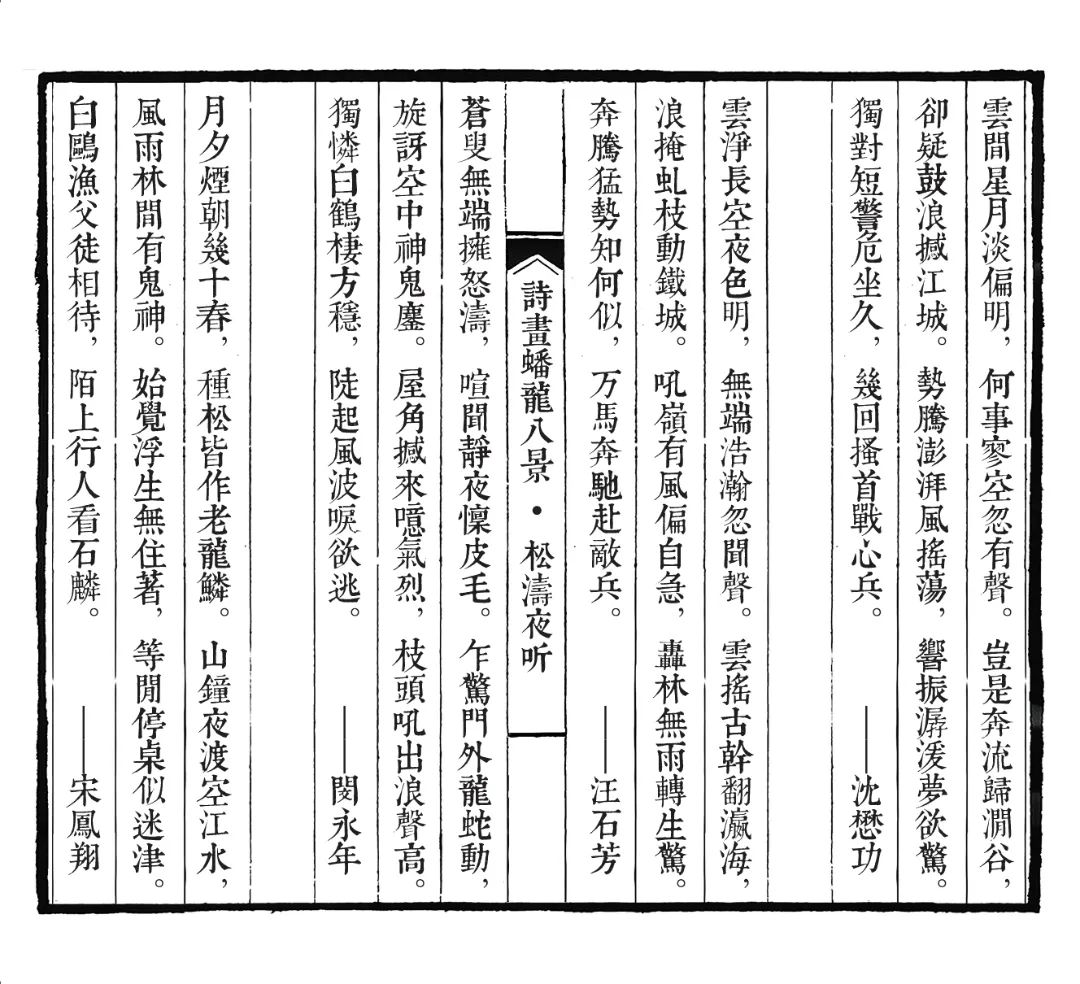 雲間星月淡偏明，何事寥空忽有聲。豈是奔流歸澗谷，
卻疑鼓浪撼江城。勢騰澎湃風搖蕩，響振潺湲夢欲驚。
獨對短檠危坐久，幾回搔首戰心兵。——沈懋功
雲淨長空夜色明，無端浩瀚忽聞聲。雲搖古幹翻瀛海，
浪掩虬枝動鐵城。吼嶺有風偏自急，轟林無雨轉生驚。
奔騰猛勢知何似，万馬奔馳赴敵兵。——汪石芳
詩畫蟠龍八景·松濤夜听
蒼叟無端擁怒濤，喧聞靜夜懔皮毛。乍驚門外龍蛇動，
旋訝空中神鬼鏖。屋角撼來噫氣烈，枝頭吼出浪聲高。
獨憐白鶴棲方穩，陡起風波唳欲逃。——閔永年
月夕煙朝幾十春，種松皆作老龍鱗。山鐘夜渡空江水，
風雨林間有鬼神。始覺浮生無住著，等閒停桌似迷津。
白鷗漁父徒相待，陌上行人看石麟。——宋鳳翔